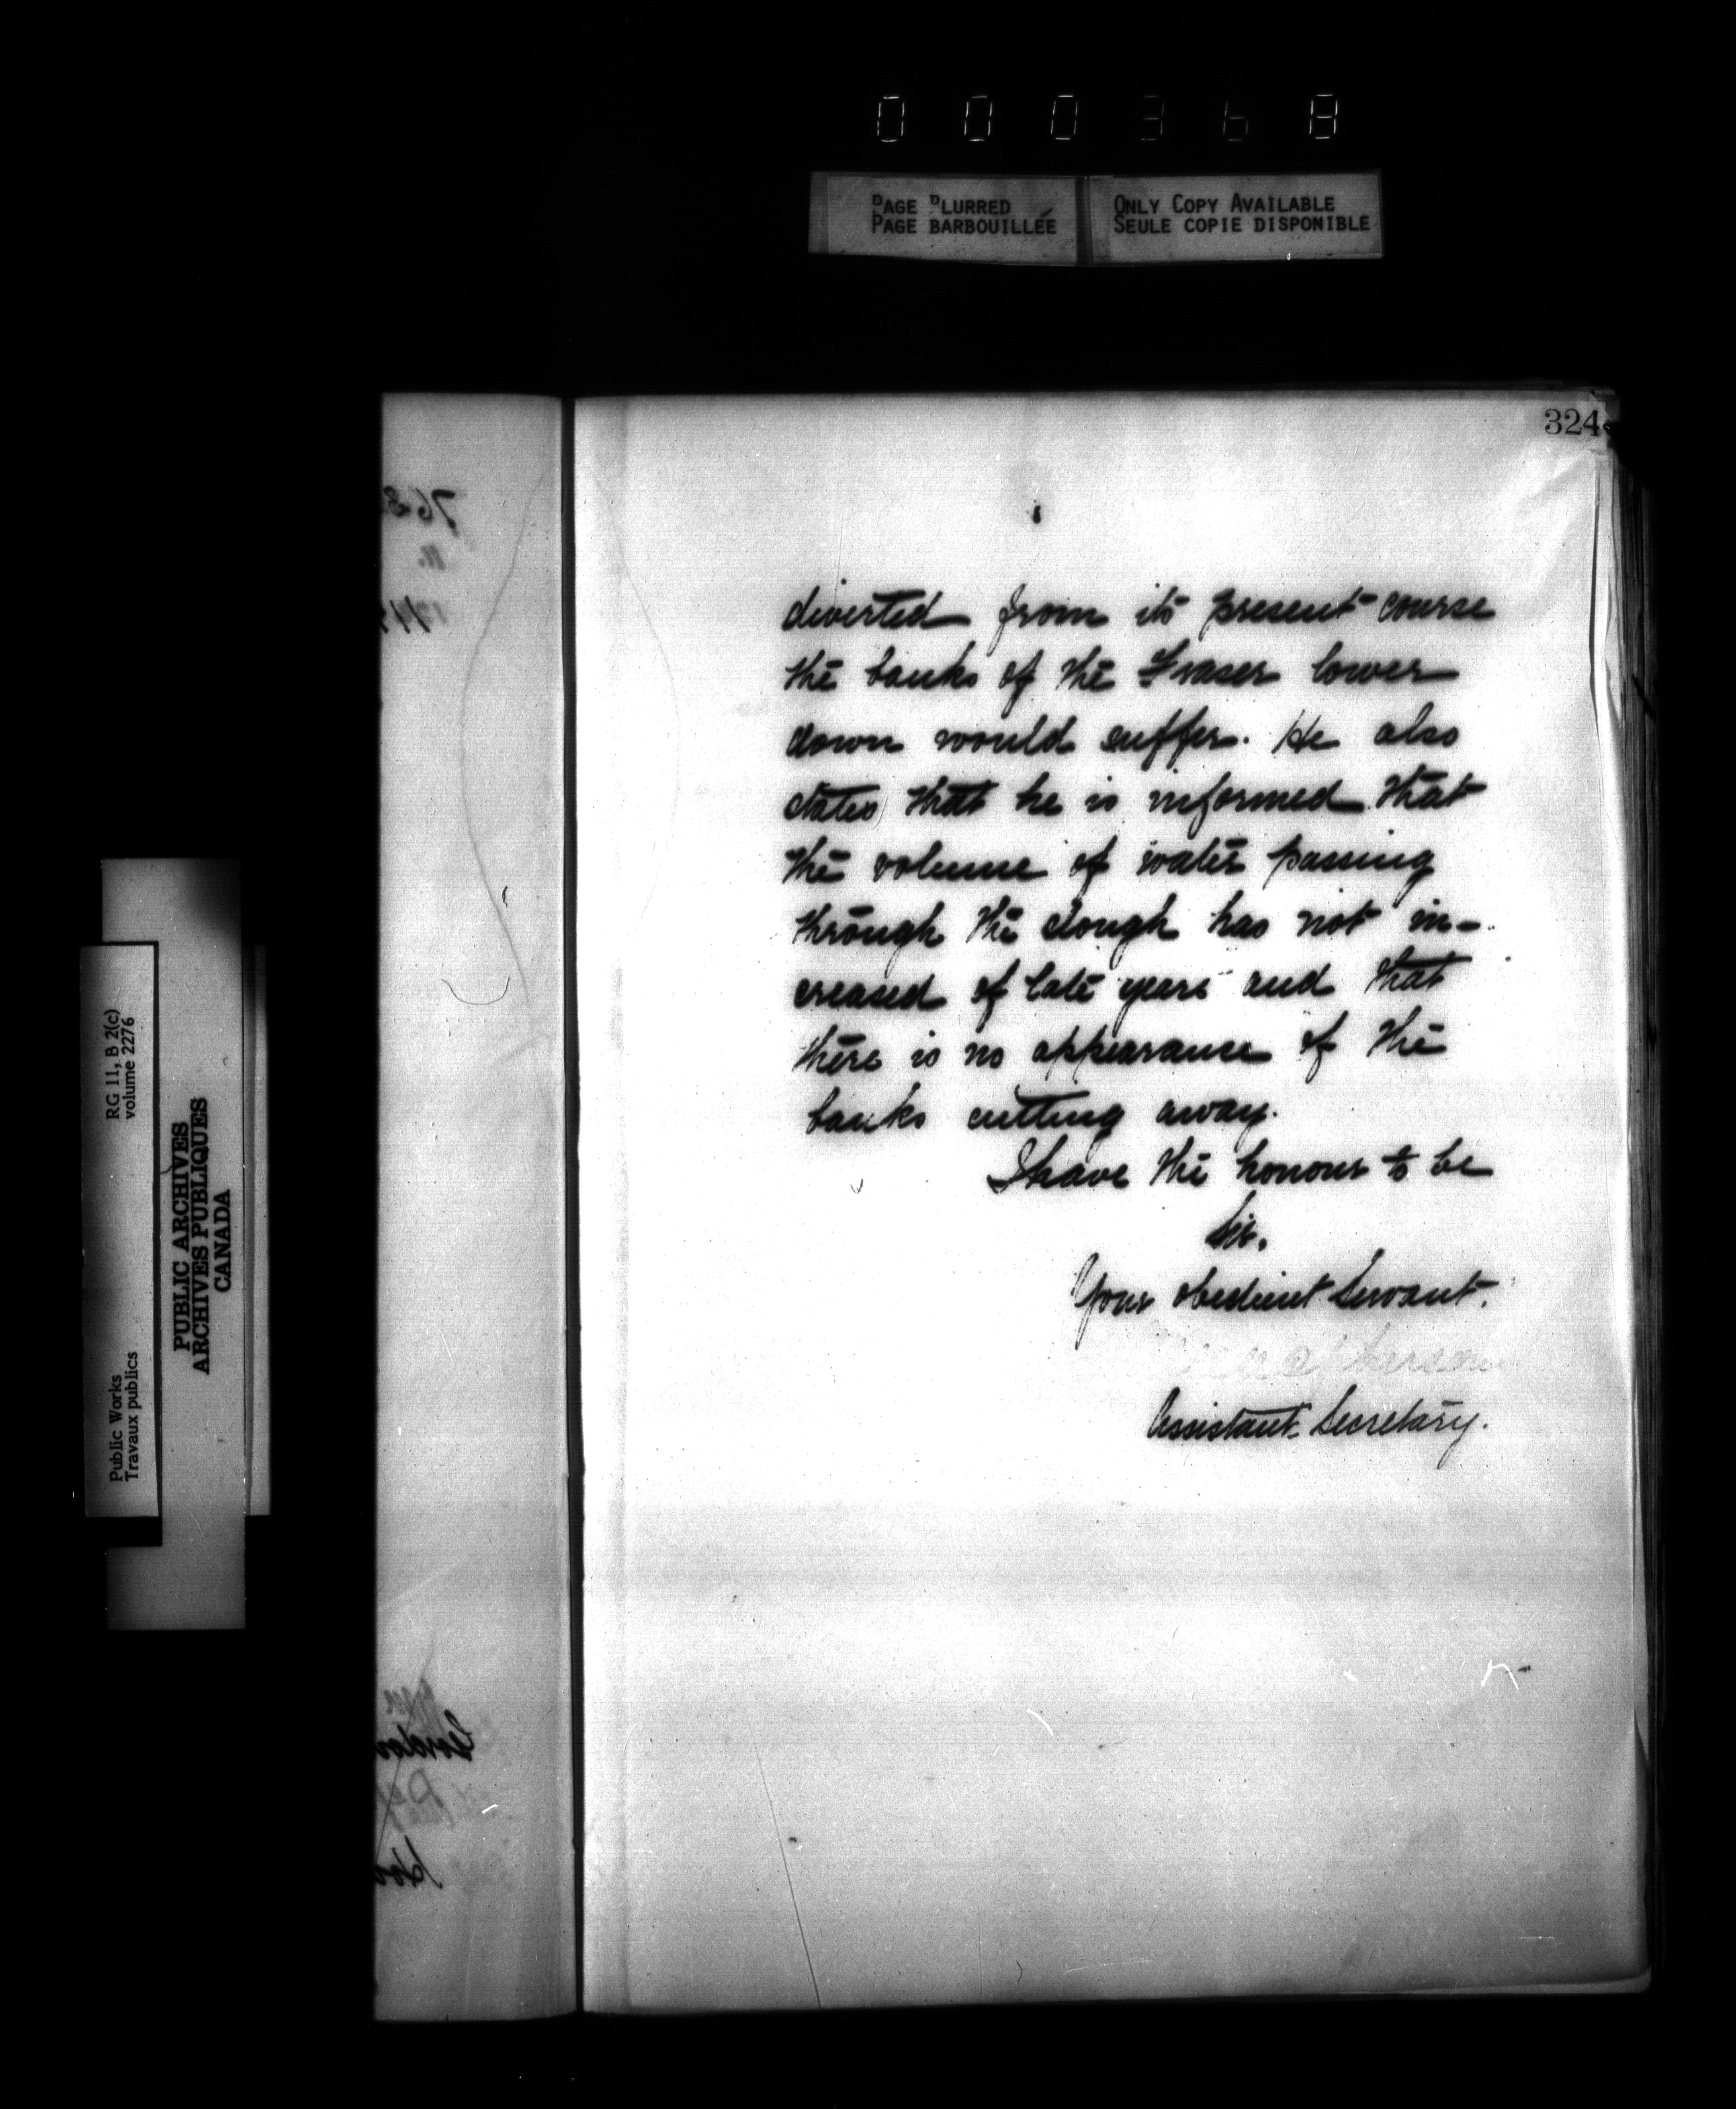 000368
PAGE BLURRED
PAGE BARBOUILLÉE
ONLY COPY AVAILABLE
SEULE COPIE DISPONIBLE
324
diverted from its present course
the banks of the Fraser lower
down would suffer. He also
states that he is informed that
the volume of water passing
through the slough has not in-
creased of late years and that
there is no appearance of the
banks cutting away.
I have the honour to be
Sir.
Your obedient Servant.
Assistant Secretary.
RG 11, B 2(c)
volume 2276
Public Works
Travaux publics
PUBLIC ARCHIVES
ARCHIVES PUBLIQUES
CANADA